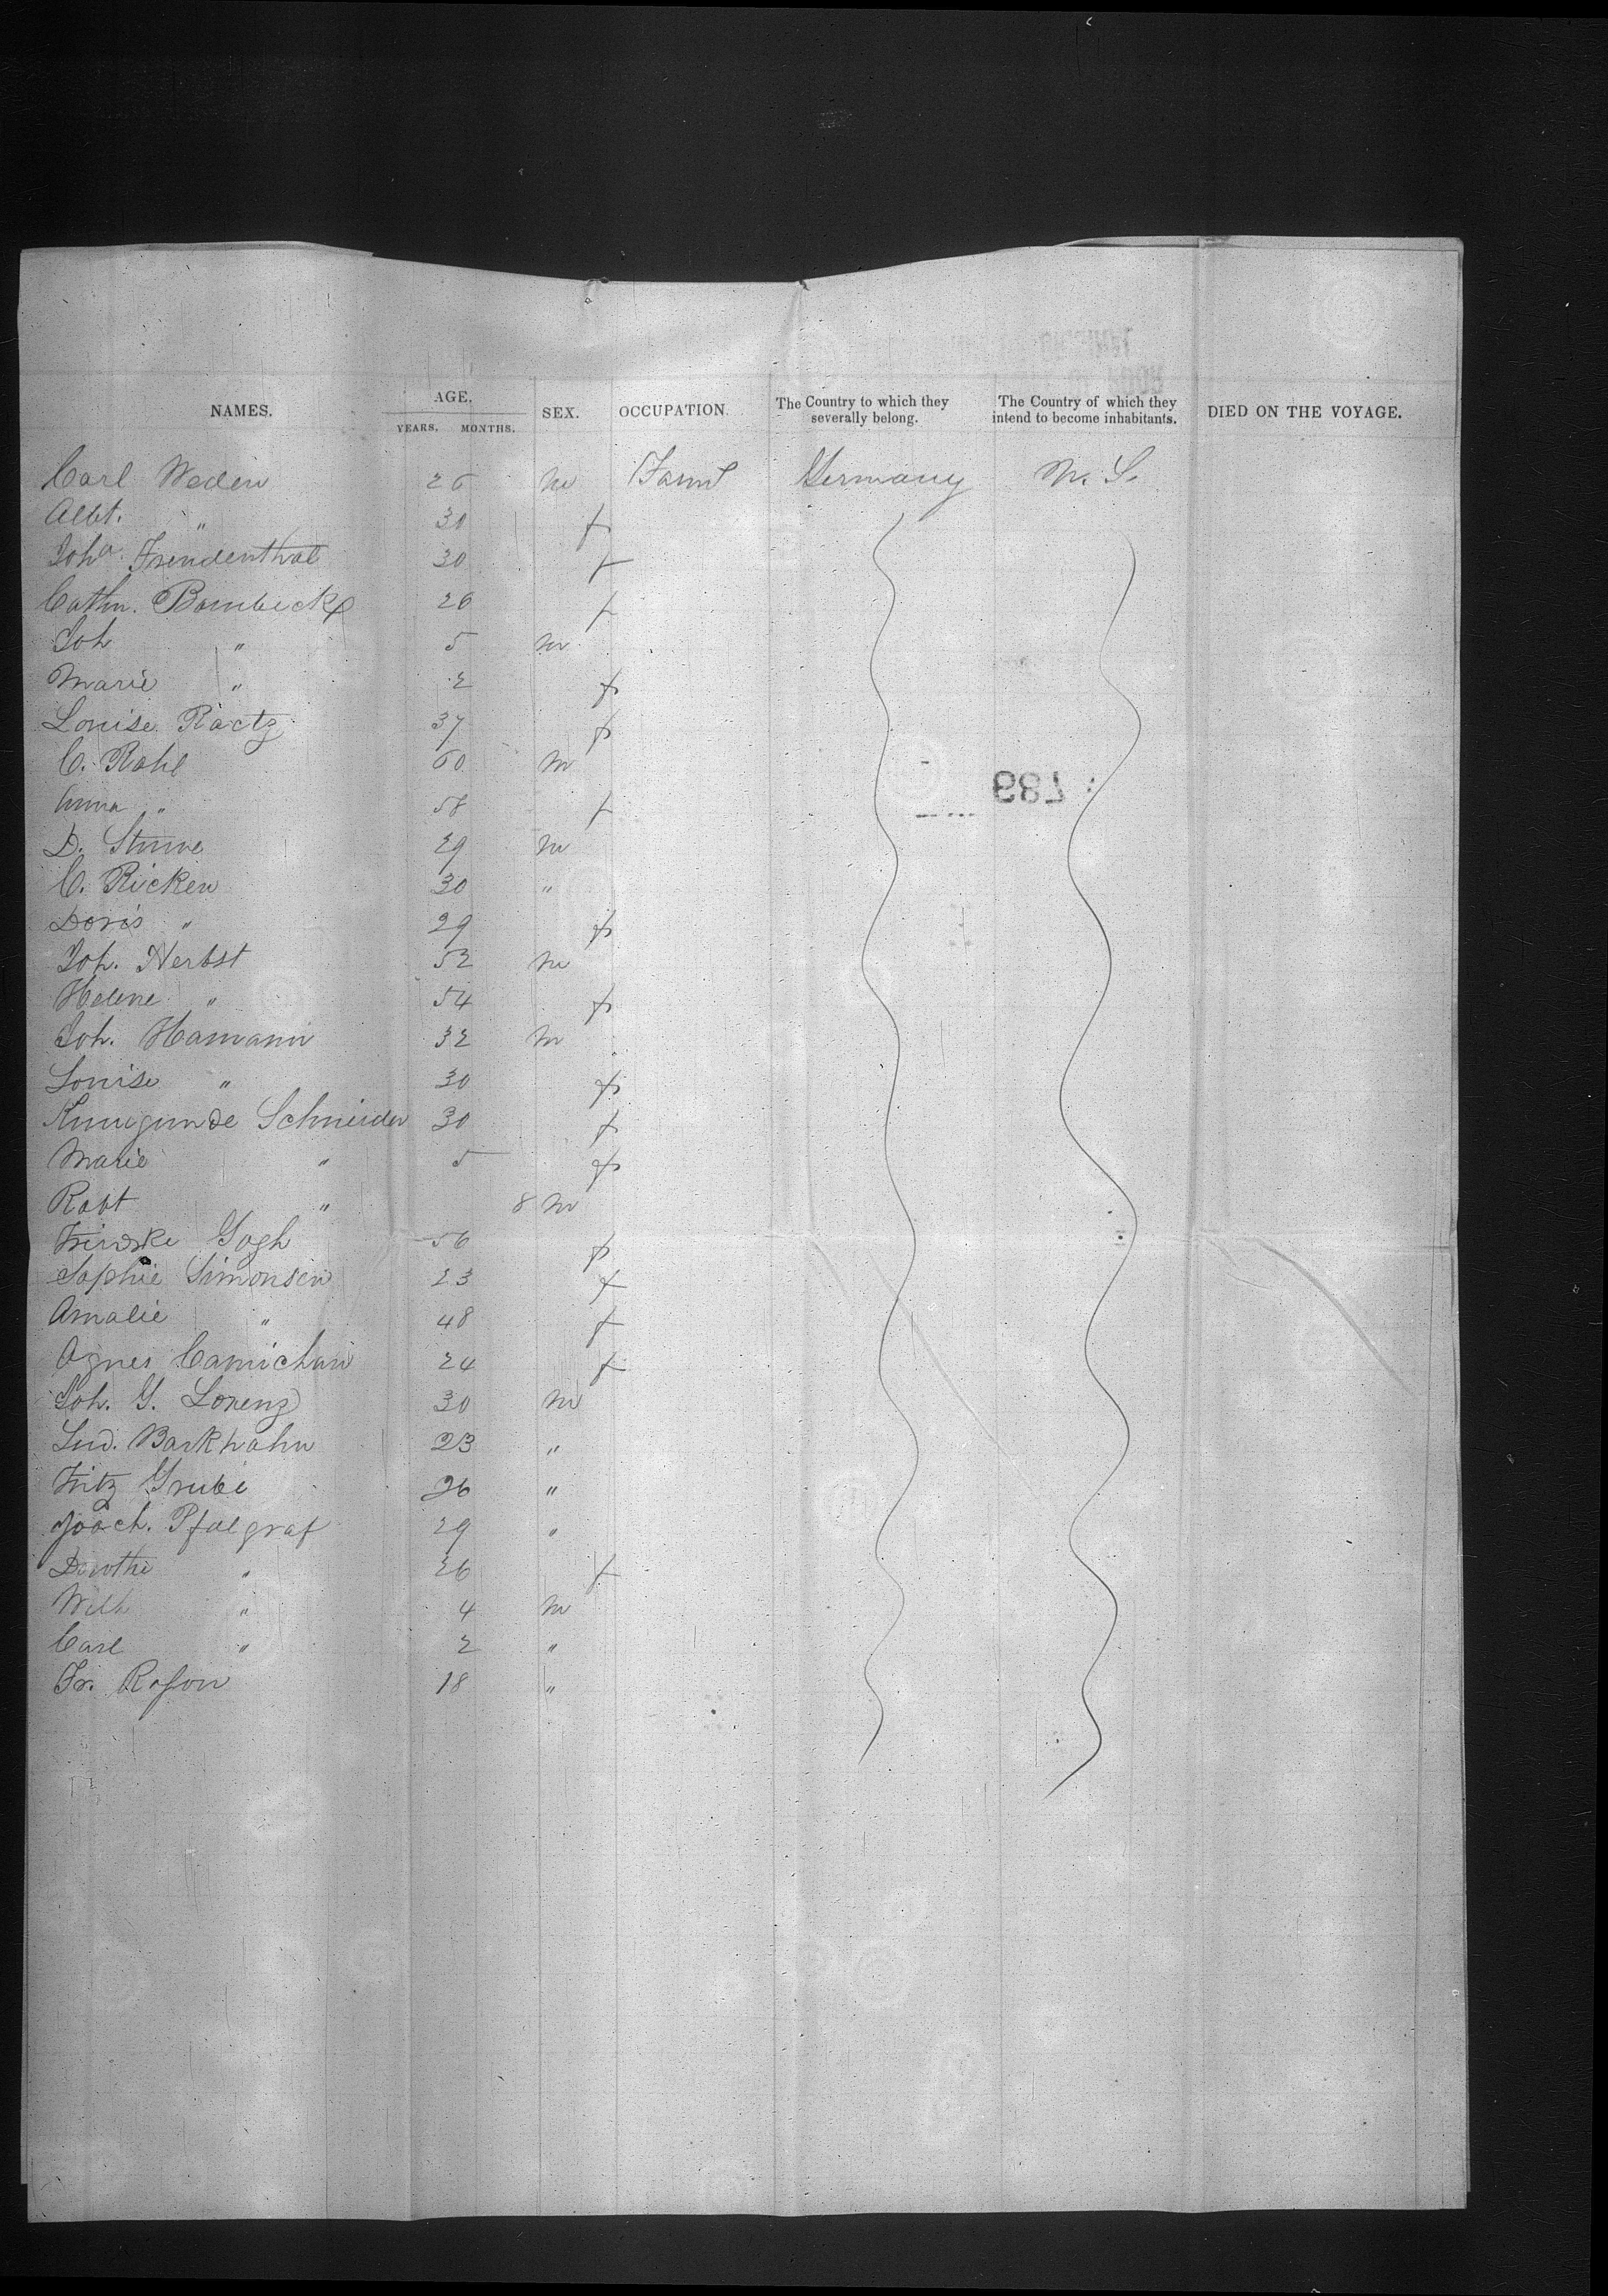 NAMES. AGE. YEARS. MONTHS. SEX. OCCUPATION. The Country to which they severally belong. The Country of which they intend to become inhabitants. DIED ON THE VOYAGE.
Carl Weden 26 m Germany U. S.
Albt. " 30 f
Joha. Freudenthal 30 f
Cathr. Bambeck 26 f
Joh " 5 m
Marie " 2 f
Louise Raetz 37 f
C. Rahl 60 m
Anna " 58 f
D. Stuve 29 m
C. Ricken 30 "
Doris " 29 f
Joh. Herbst 52 m
Helene " 54 f
Joh. Hamann 32 m
Louise " 30 f
Kunigunde Schneider 30 f
Marie " 5 f
Robt " 8 m
Gogh 56 f
Sophie Simonsen 23 f
Amalie " 48 f
Agnes 24 f
Joh. G. Lorenz 30 m
Lud. Barkhahn 23 "
Fritz Grube 26 "
Joach. Pfalgraf 29 "
Dorothe " 26 f
Wilh " 4 m
Carl " 2 "
Fr. 18 "
789